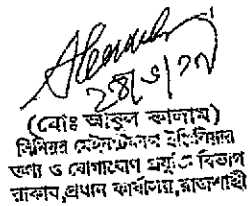 ২৪/৬/২৭
(মোঃ আবুল কালাম)
সিনিয়র মেইনটেন্যান্স ইঞ্জিনিয়ার
তথ্য ও যোগাযোগ প্রযুক্তি বিভাগ
রাকাব,প্রধান কার্যালয়,রাজশাহী